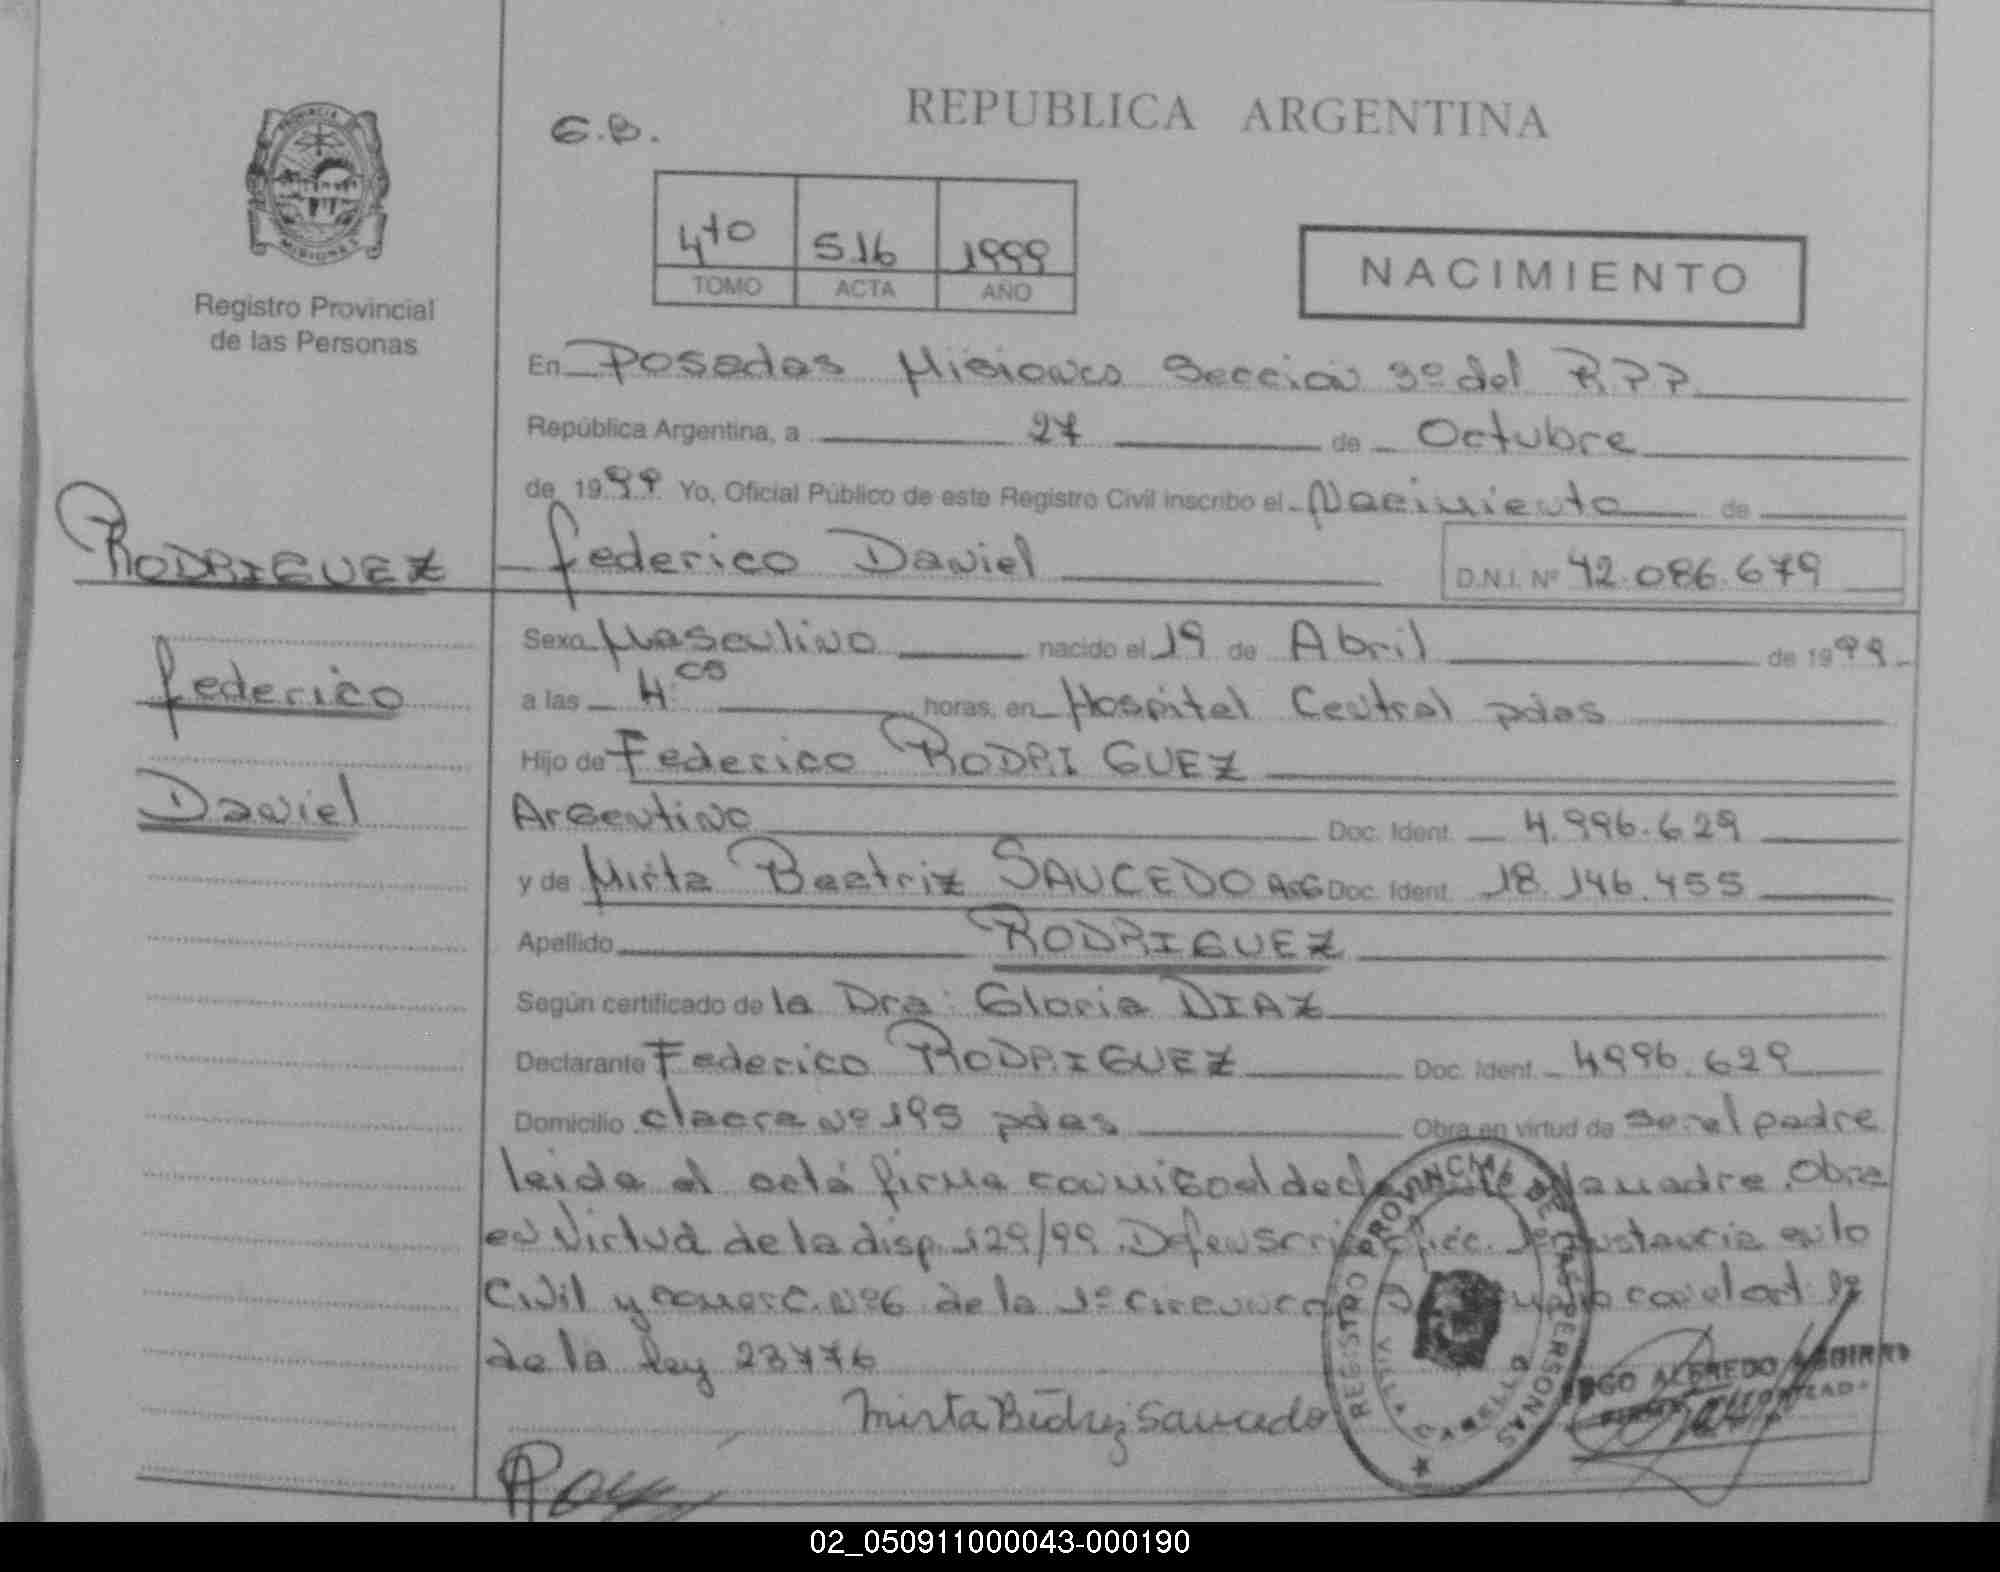 REPUBLICA ARGENTINA
G.B.
4to 516 1999
TOMO ACTA AÑO
NACIMIENTO
Registro Provincial
de las Personas
En Posadas Misiones Sección 3º del R.P.P.
República Argentina, a 27 de Octubre
de 1999 Yo, Oficial Público de este Registro Civil inscribo el Nacimiento de
RODRIGUEZ Federico Daniel D.N.I. Nº 42.086.679
Sexo Masculino nacido el 19 de Abril de 1999
Federico
a las 4 horas, en Hospital Central pdas
Hijo de Federico RODRIGUEZ
Daniel
Argentino Doc. Ident. 4.996.629
y de Mirta Beatriz SAUCEDO ARG Doc. Ident. 18.146.455
Apellido RODRIGUEZ
Según certificado de la Dra. Gloria DIAZ
Declarante Federico RODRIGUEZ Doc. Ident. 4996.629
Domicilio chacra nº 195 pdas Obra en virtud de ser el padre
leida el acta firma conmigo el la madre. Obra
en Virtud de la disp. 129/99. en lo
Civil y comerc. Nº6 de la 1º con el art
de la ley 23776
Mirta Beatriz Saucedo
REGISTRO PROVINCIAL DE LAS PERSONAS
ALFREDO AGUIRRE
02_050911000043-000190